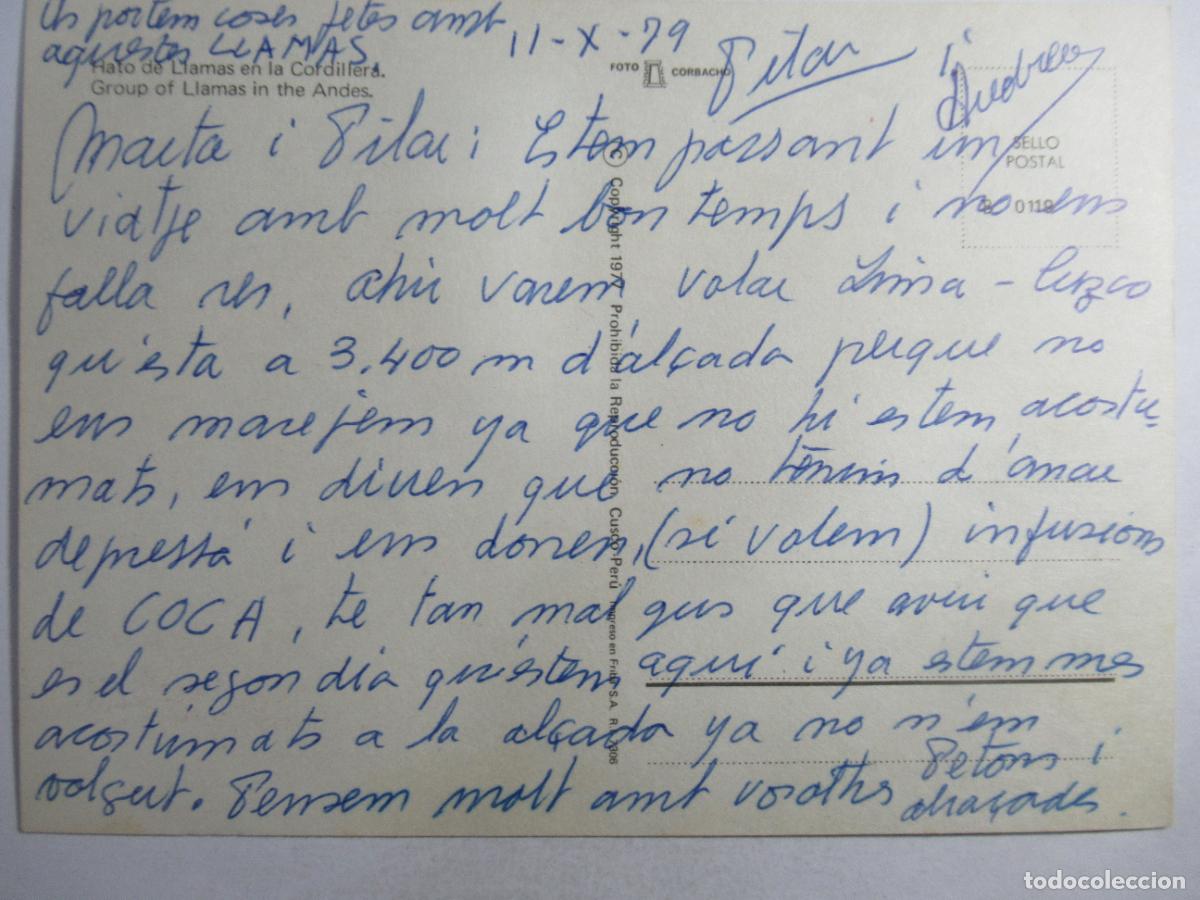 Us portem coses fetes amb
aquestes LLAMAS.
11-X-79
Pilar i
Andreu
Hato de Llamas en la Cordillera.
Group of Llamas in the Andes.
FOTO CORBACHO
SELLO
POSTAL
0119
© Copyright 1977 Prohibida la Reproducción, Cusco-Perú Impreso en Frisa S.A.
Marta i Pilar: Estem passant un
viatje amb molt bon temps i no ens
falla res, ahir varem volar Lima - Cuzco
qu'esta a 3.400 m d'alçada perque no
ens marejem ya que no hi estem acostu-
mats, ens diuen que no tenim d'anar
depressa i ens donen, (si volem) infusions
de COCA, te tan mal gus que avui que
es el segon dia qu'estem aqui i ya estem mes
acostumats a la alçada ya no n'em
volgut. Pensem molt amb vosaltres Petons i
abraçades.
todocoleccion